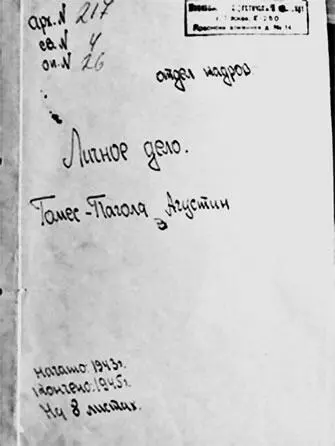 арх.N 217
св.N 4
оп.N 26
г. Москва, Е-250
отдел кадров
Личное дело.
Гомес-Пагола Агустин
начато: 1943г.
окончено: 1945г.
На 8 листах.